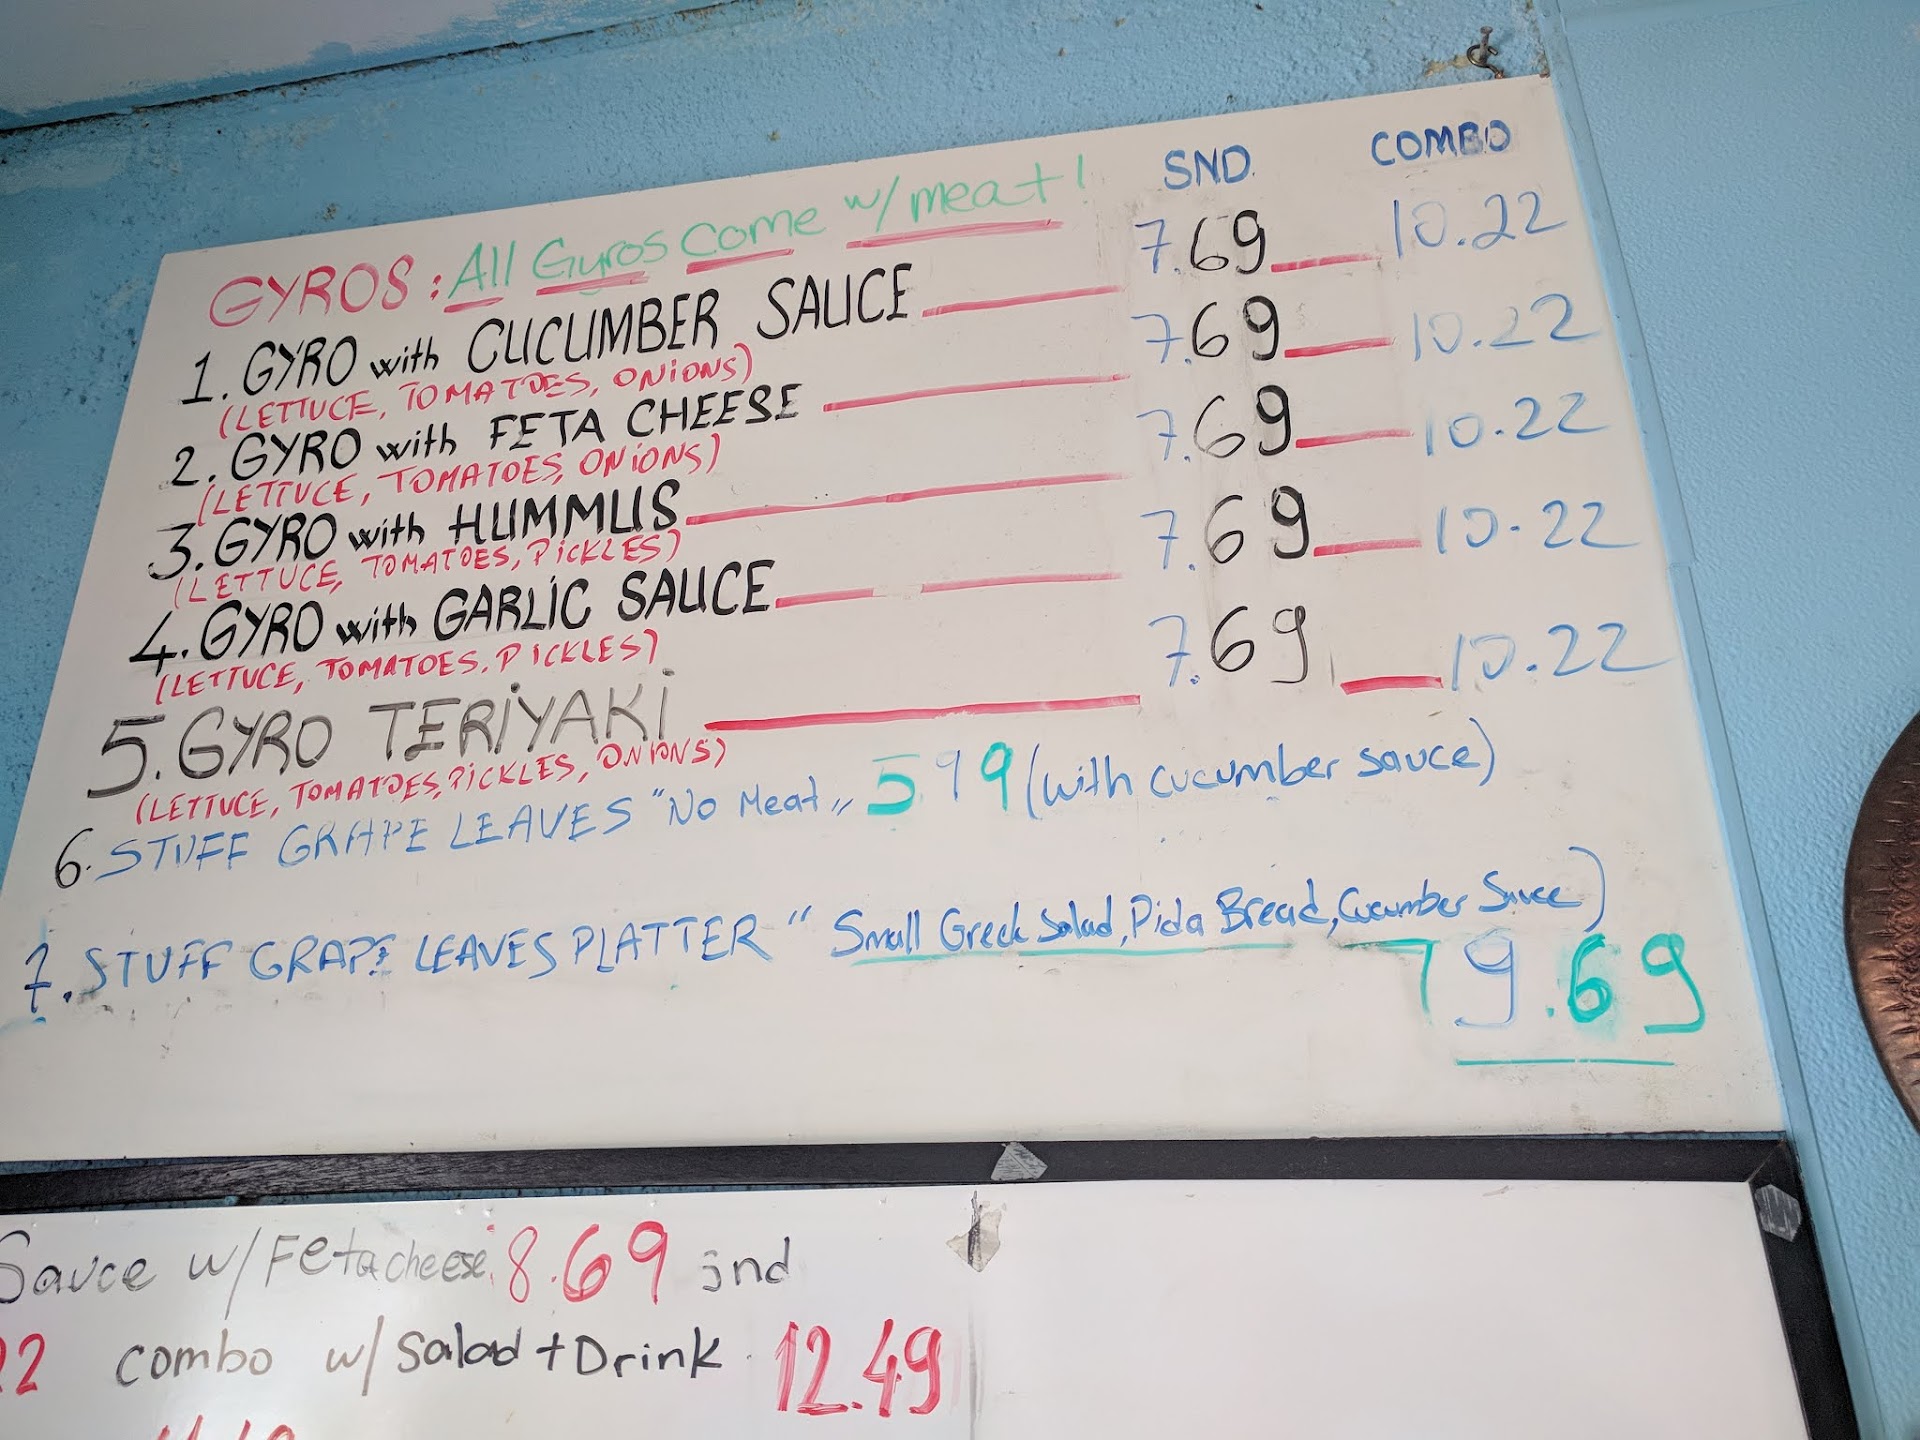 SND. COMBO
GYROS: All Gyros Come w/ meat!
1. GYRO with CUCUMBER SAUCE 7.69 10.22
(LETTUCE, TOMATOES, ONIONS)
2. GYRO with FETA CHEESE 7.69 10.22
(LETTUCE, TOMATOES, ONIONS)
3. GYRO with HUMMUS 7.69 10.22
(LETTUCE, TOMATOES, PICKLES)
4. GYRO with GARLIC SAUCE 7.69 10.22
(LETTUCE, TOMATOES, PICKLES)
5. GYRO TERIYAKI 7.69 10.22
(LETTUCE, TOMATOES, PICKLES, ONIONS)
6. STUFF GRAPE LEAVES "No Meat" 5.99 (with cucumber sauce)
7. STUFF GRAPE LEAVES PLATTER " Small Greek Salad, Pida Bread, Cucumber Sauce)
9.69
Sauce w/ Feta cheese 8.69 snd
22 combo w/ salad + Drink 12.49